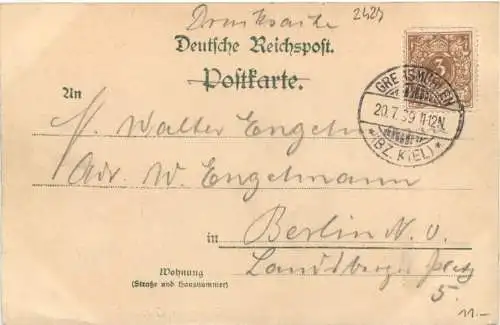 Drucksache 2424
Deutsche Reichspost.
Postkarte.
3
GREMSMÜHLEN
20.7.99 11-12N.
*(BZ. KIEL)*
An
H. Walter Engelm
Adr. W. Engelmann
in Berlin N.O.
Landsberger platz
5.
Wohnung
(Straße und Hausnummer)
11.-